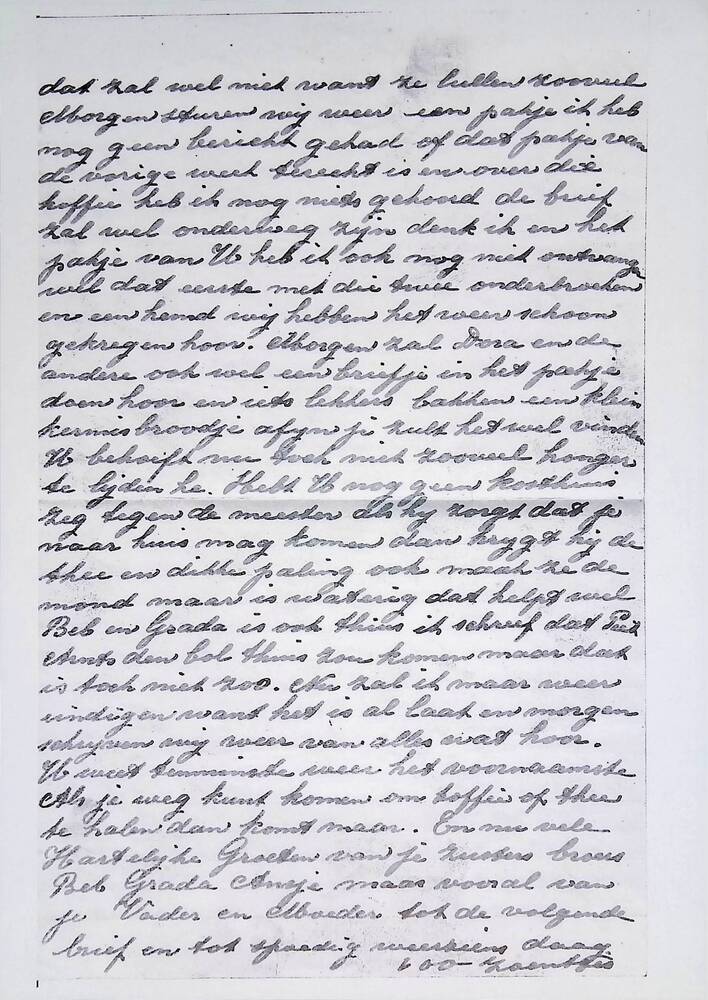 dat zal wel niet want ze lullen zooveel
Morgen sturen wij weer een pakje ik heb
nog geen bericht gehad of dat pakje van
de vorige week terecht is en over die
koffie heb ik nog niets gehoord de brief
zal wel onderweg zijn denk ik en het
pakje van U heb ik ook nog niet ontvangen
wel dat eerste met die twee onderbroeken
en een hemd wij hebben het weer schoon
gekregen hoor. Morgen zal Dora en de
andere ook wel een briefje in het pakje
doen hoor en iets lekkers bakken een klein
kermisbroodje afyn je zult het wel vinden
U behoeft nu toch niet zooveel honger
te lijden he. Hebt U nog geen kosthuis
zeg tegen de meester als hy zorgt dat je
naar huis mag komen dan krygt hij de
thee en dikke paling ook maak ze de
mond maar is waterig dat helpt wel
Beb en Grada is ook thuis ik schreef dat Piet
Arnts den bol thuis zou komen maar dat
is toch niet zoo. Nu zal ik maar weer
eindigen want het is al laat en morgen
schrijven wij weer van alles wat hoor.
U weet tenminste weer het voornaamste
Als je weg kunt komen om koffie of thee
te halen dan komt maar. En nu vele
Hartelijke Groeten van je zusters broers
Beb Grada Ansje maar vooral van
je Vader en Moeder tot de volgende
brief en tot spoedig weerziens daag
100 - zoentjes